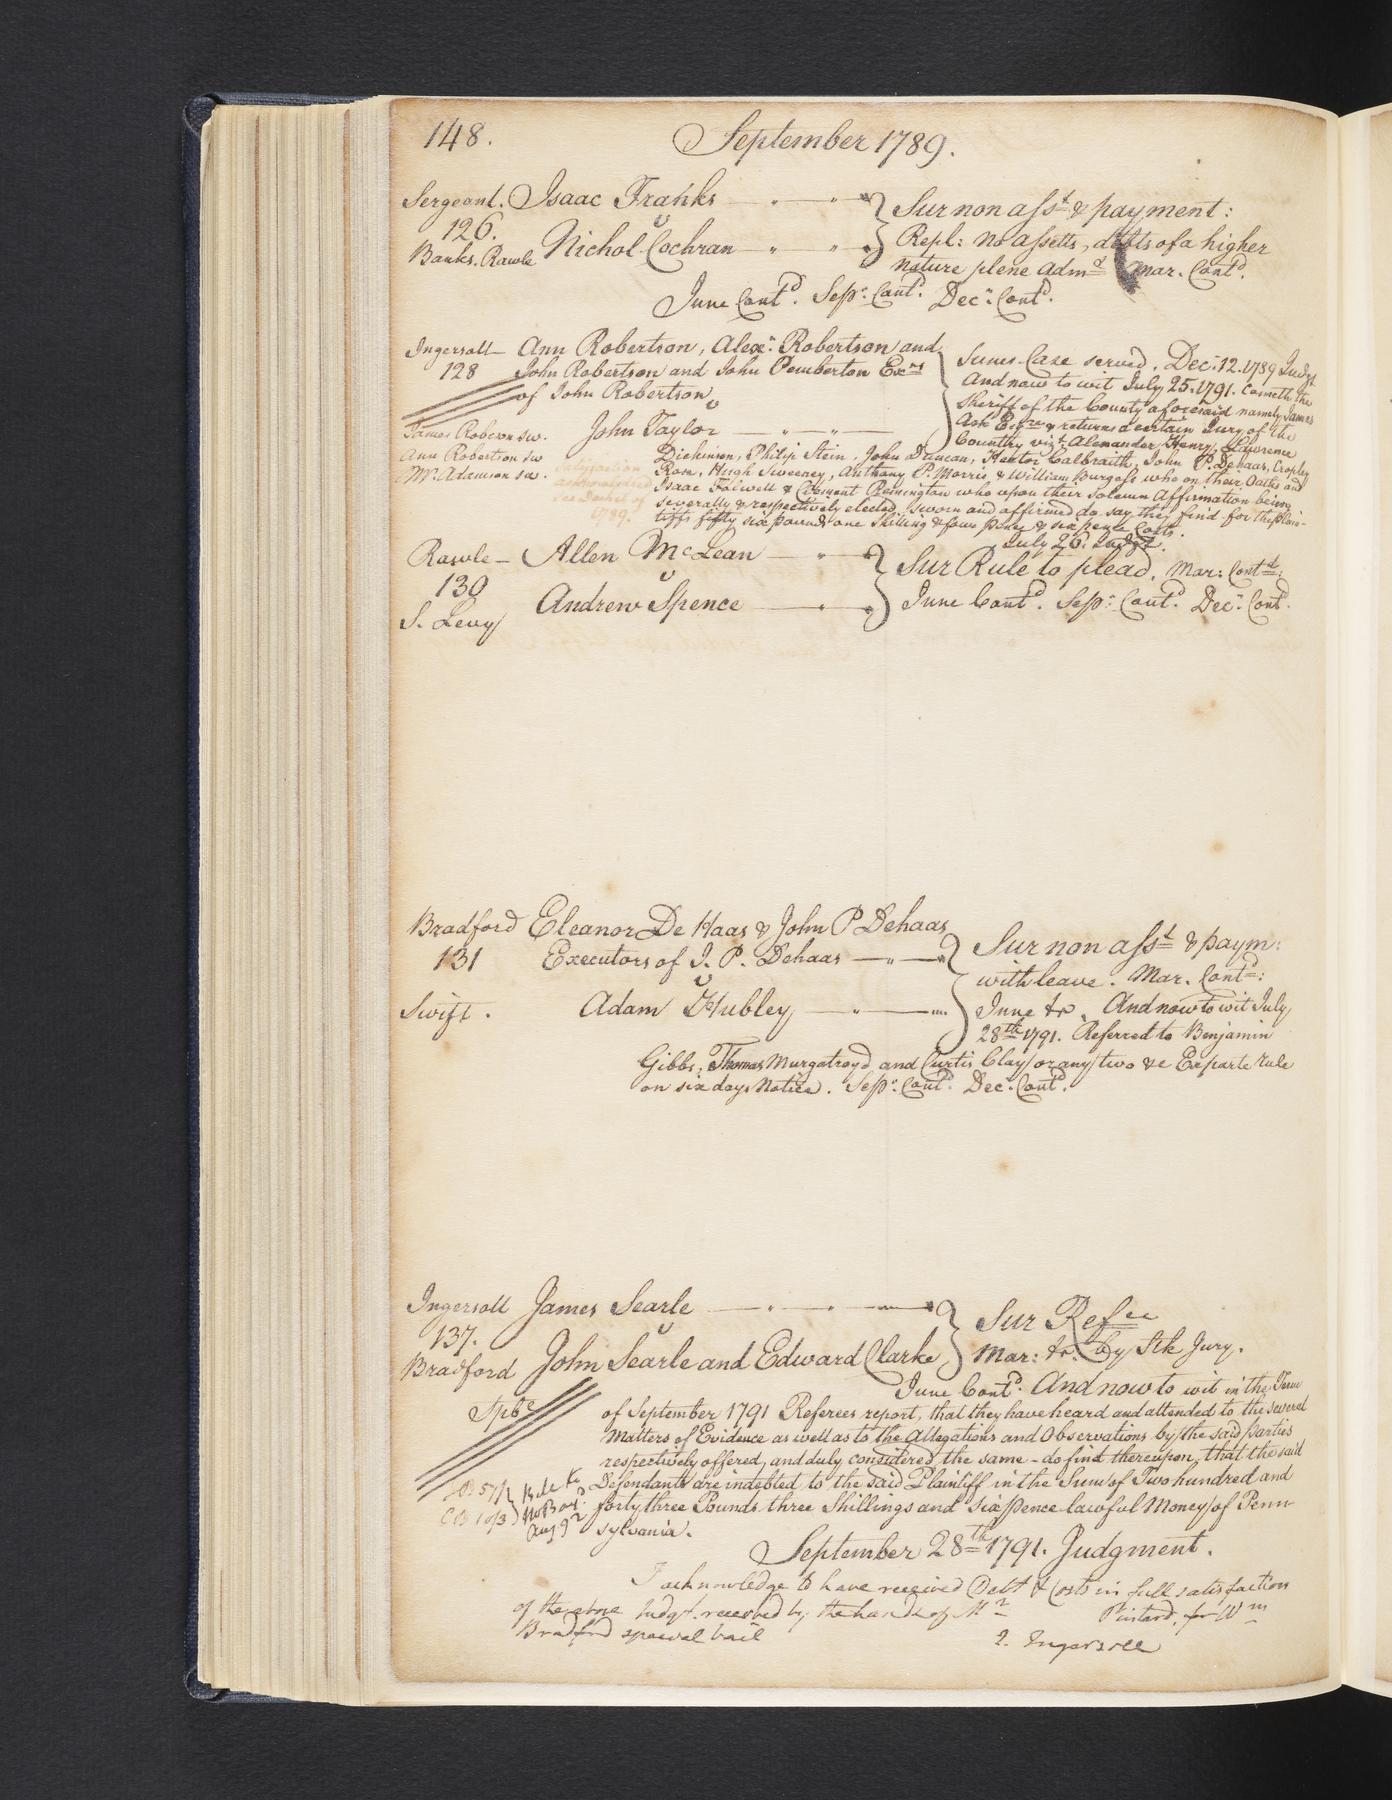 148.
September 1789.
Sergeant. Isaac Franks
v
126.
Banks. Rawle Nichol. Cochran
Sur non asst & payment:
Repl: no assetts, debts of a higher
nature plene admd Mar. Contd.
June Contd. Sepr. Contd. Decr. Contd.
Ingersoll Ann Robertson, Alexr. Robertson and
128 John Robertson and John Pemberton Exrs
of John Robertson
v
James Roberson sw. John Taylor
Ann Robertson sw
Wm. Adamson sw.
Satisfaction
acknowledged
See Docket of
1789.
Sums. Case served. Decr. 12. 1789 Judgt
And now to wit July 25. 1791. Cometh the
Sheriff of the County aforesaid namely James
Ash Esqre & returns a certain Jury of the
Country vizt. Alexander Henry, Lawrence
Dickinson, Philip Stein, John Duncan, Hector Calbraith, John P. Dehaas, Cropley
Rose, Hugh Sweeney, Anthony P. Morris, & William Burgess who on their Oaths and
Isaac Folwell & Clement Remington who upon their solemn Affirmation being
severally & respectively elected, sworn and affirmed do say they find for the Plain-
tiffs fifty six pounds one Shilling & four pence & six pence Costs.
July 26. Judgt.
Rawle Allen McLean
v
130
S. Levy Andrew Spence
Sur Rule to plead. Mar: Contd.
June Contd. Sepr. Contd. Decr. Contd.
Bradford Eleanor De Haas & John P Dehaas
131 Executors of J. P. Dehaas
v
Swift. Adam Hubley
Sur non asst & paym:
with leave. Mar. Contd:
June &c. And now to wit July
28th 1791. Referred to Benjamin
Gibbs, Thomas Murgatroyd and Curtis Clay or any two &c Ex parte rule
on six days Notice. Sepr. Contd. Decr. Contd.
Ingersoll James Searle
v
137.
Bradford John Searle and Edward Clarke
Sur Refce
Mar: &c. By Stk Jury.
June Contd. And now to wit in the Term
of September 1791 Referees report, that they have heard and attended to the several
Matters of Evidence as well as to the Allegations and Observations by the said parties
respectively offered, and duly considered the same - do find thereupon, that the said
Defendants are indebted to the said Plaintiff in the Sum of Two hundred and
forty three Pounds three Shillings and Six Pence lawful Money of Penn
sylvania.
September 28th 1791. Judgment.
I acknowledge to have received Debt & Costs in full satisfaction
of the above Judgt. received by the hands of Mr Pintard, for Wm
Bradford special bail
J. Ingersoll